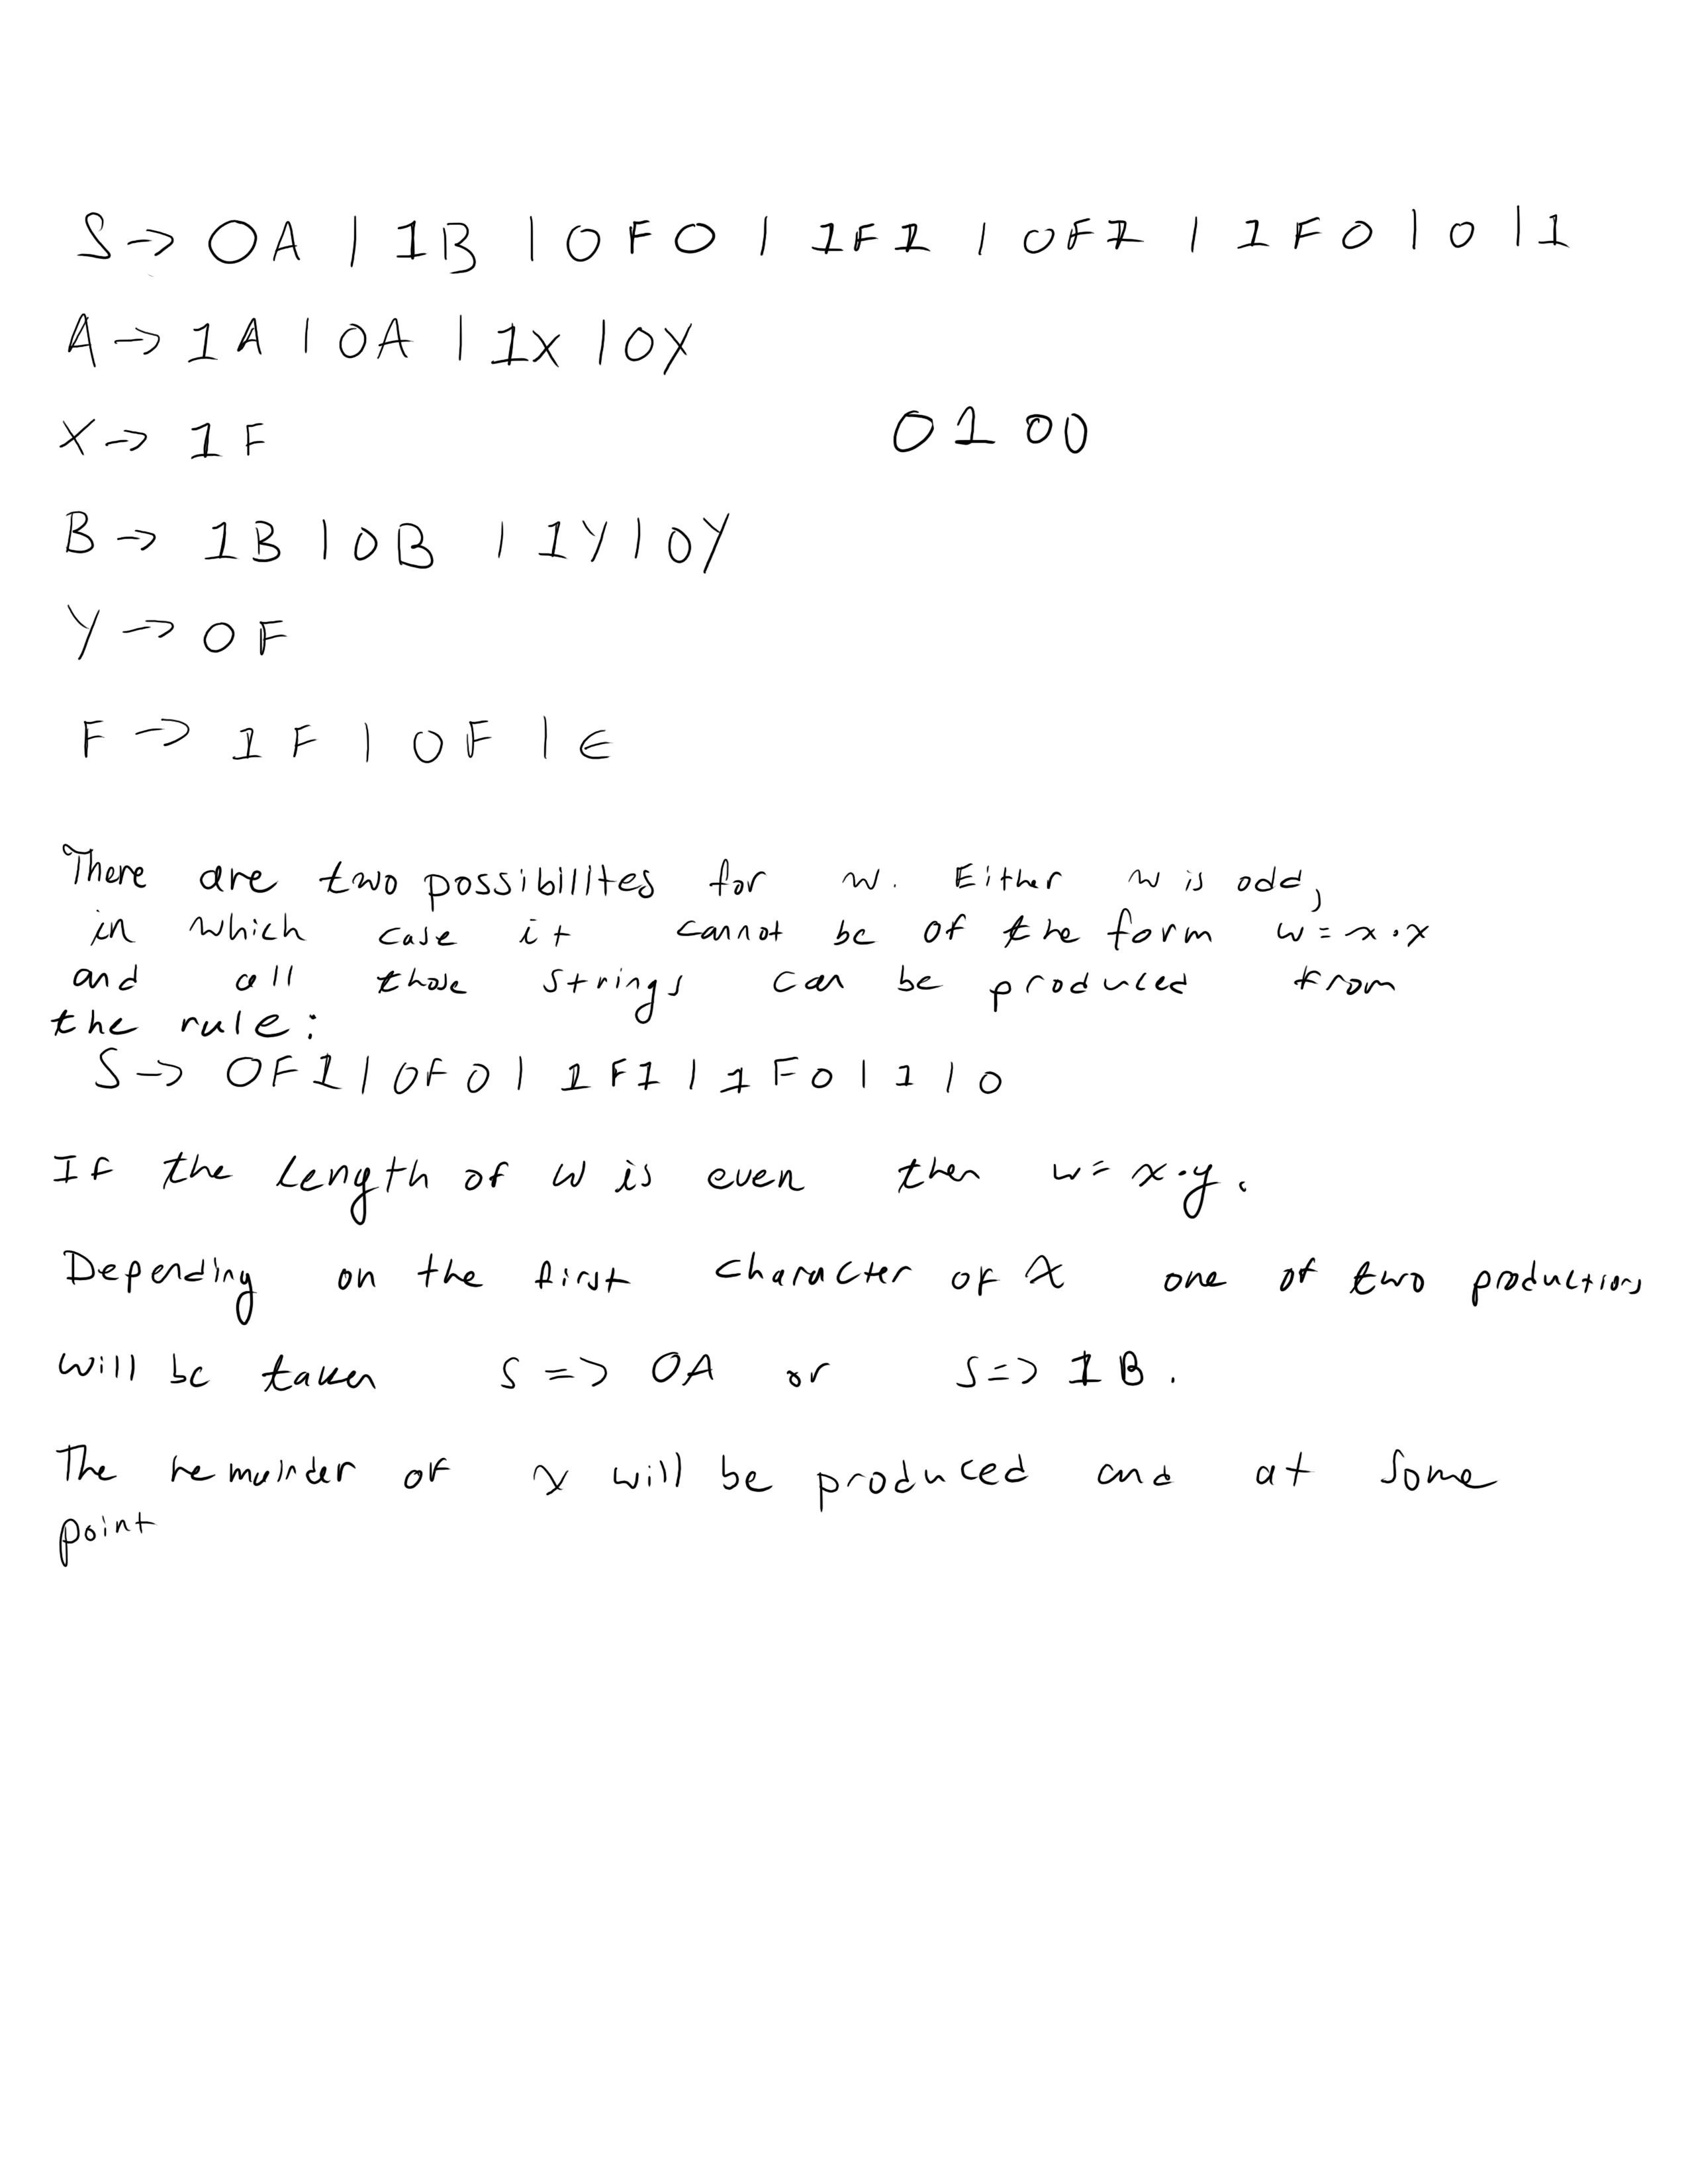 S → 0A | 1B | 0F0 | 1F1 | 0F1 | 1F0 | 0 | 1
A → 1A | 0A | 1X | 0Y
X → 1F
0100
B → 1B | 0B | 1Y | 0Y
Y → 0F
F → 1F | 0F | ϵ
There are two possibilites for w. Either w is odd,
in which case it cannot be of the form w = x·x
and all those strings can be produced from
the rule:
S → 0F1 | 0F0 | 1F1 | 1F0 | 1 | 0
If the length of w is even then w = x·y.
Depending on the first character of x one of two productions
will be taken S => 0A or S => 1B.
The remainder of x will be produced and at some
point